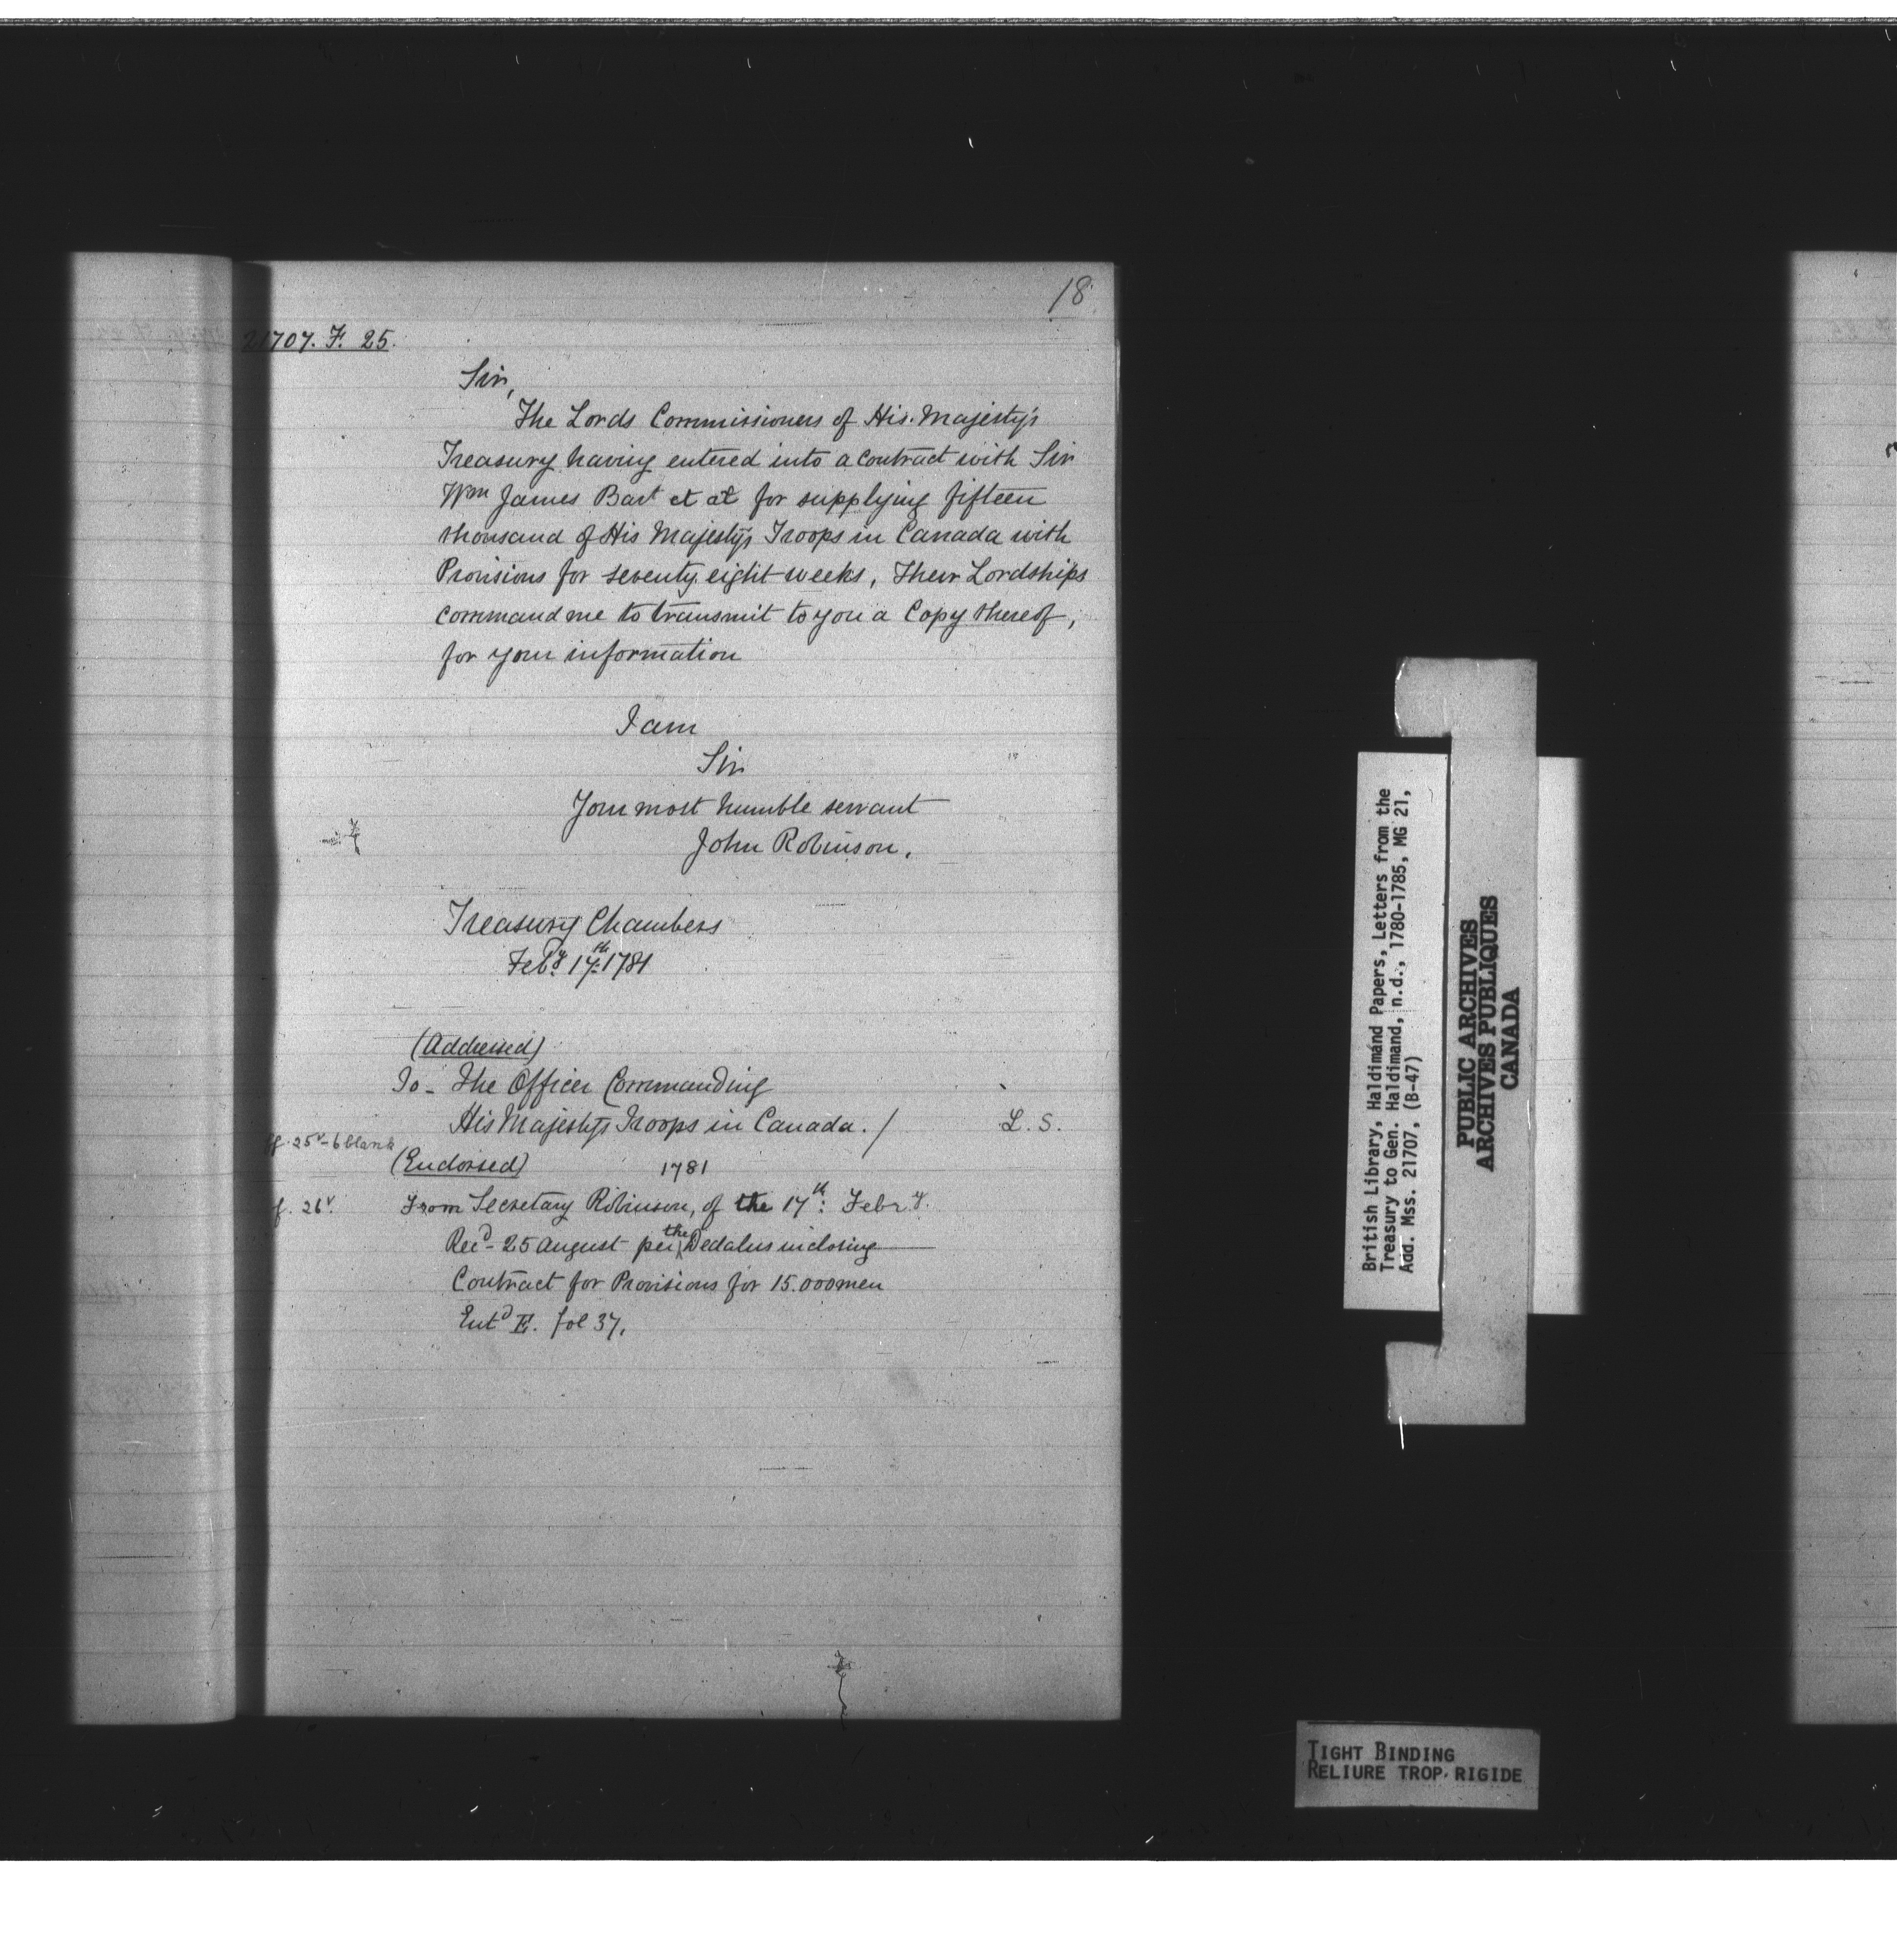 18
21707. F. 25.
Sir,
The Lords Commissioners of His Majesty's
Treasury having entered into a Contract with Sir
Wm James Bart et at for supplying fifteen
thousand of His Majesty's Troops in Canada with
Provisions for seventy eight weeks, Their Lordships
command me to transmit to you a Copy thereof,
for your information
I am
Sir
Your most humble servant
John Robinson.
Treasury Chambers
Feby 17th 1781
(Addressed)
To - The Officer Commanding
His Majesty's Troops in Canada. /
L. S.
ff. 25v-6 blank
(Endorsed)
1781
f. 26v.
From Secretary Robinson, of the 17th: Febry.
Recd - 25 August per the Dedalus inclosing
Contract for Provisions for 15.000 men
Entd E. fol 37.
British Library, Haldimand Papers, Letters from the
Treasury to Gen. Haldimand, n.d., 1780-1785, MG 21,
Add. Mss. 21707, (B-47)
PUBLIC ARCHIVES
ARCHIVES PUBLIQUES
CANADA
TIGHT BINDING
RELIURE TROP RIGIDE